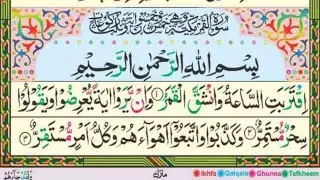 سُوْرَةُ الْقَمَرِ مَكِّيَّةٌ وَّهِيَ
بِسْمِ اللّٰهِ الرَّحْمٰنِ الرَّحِيْمِ
اِقْتَرَبَتِ السَّاعَةُ وَانْشَقَّ الْقَمَرُ ۝١ وَاِنْ يَّرَوْا اٰيَةً يُّعْرِضُوْا وَيَقُوْلُوْا
سِحْرٌ مُّسْتَمِرٌّ ۝٢ وَكَذَّبُوْا وَاتَّبَعُوْٓا اَهْوَآءَهُمْ وَكُلُّ اَمْرٍ مُّسْتَقِرٌّ ۝٣
وَلَقَدْ جَآءَهُمْ منزل Ikhfa Qalqala Ghunna Tafkheem